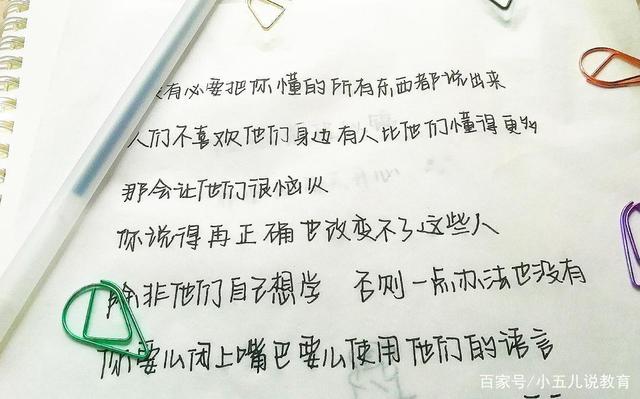 没有必要把你懂的所有东西都说出来
人们不喜欢他们身边有人比他们懂得更多
那会让他们很恼火
你说得再正确也改变不了这些人
除非他们自己想学 否则一点办法也没有
你要么闭上嘴巴要么使用他们的语言
百家号/小五儿说教育